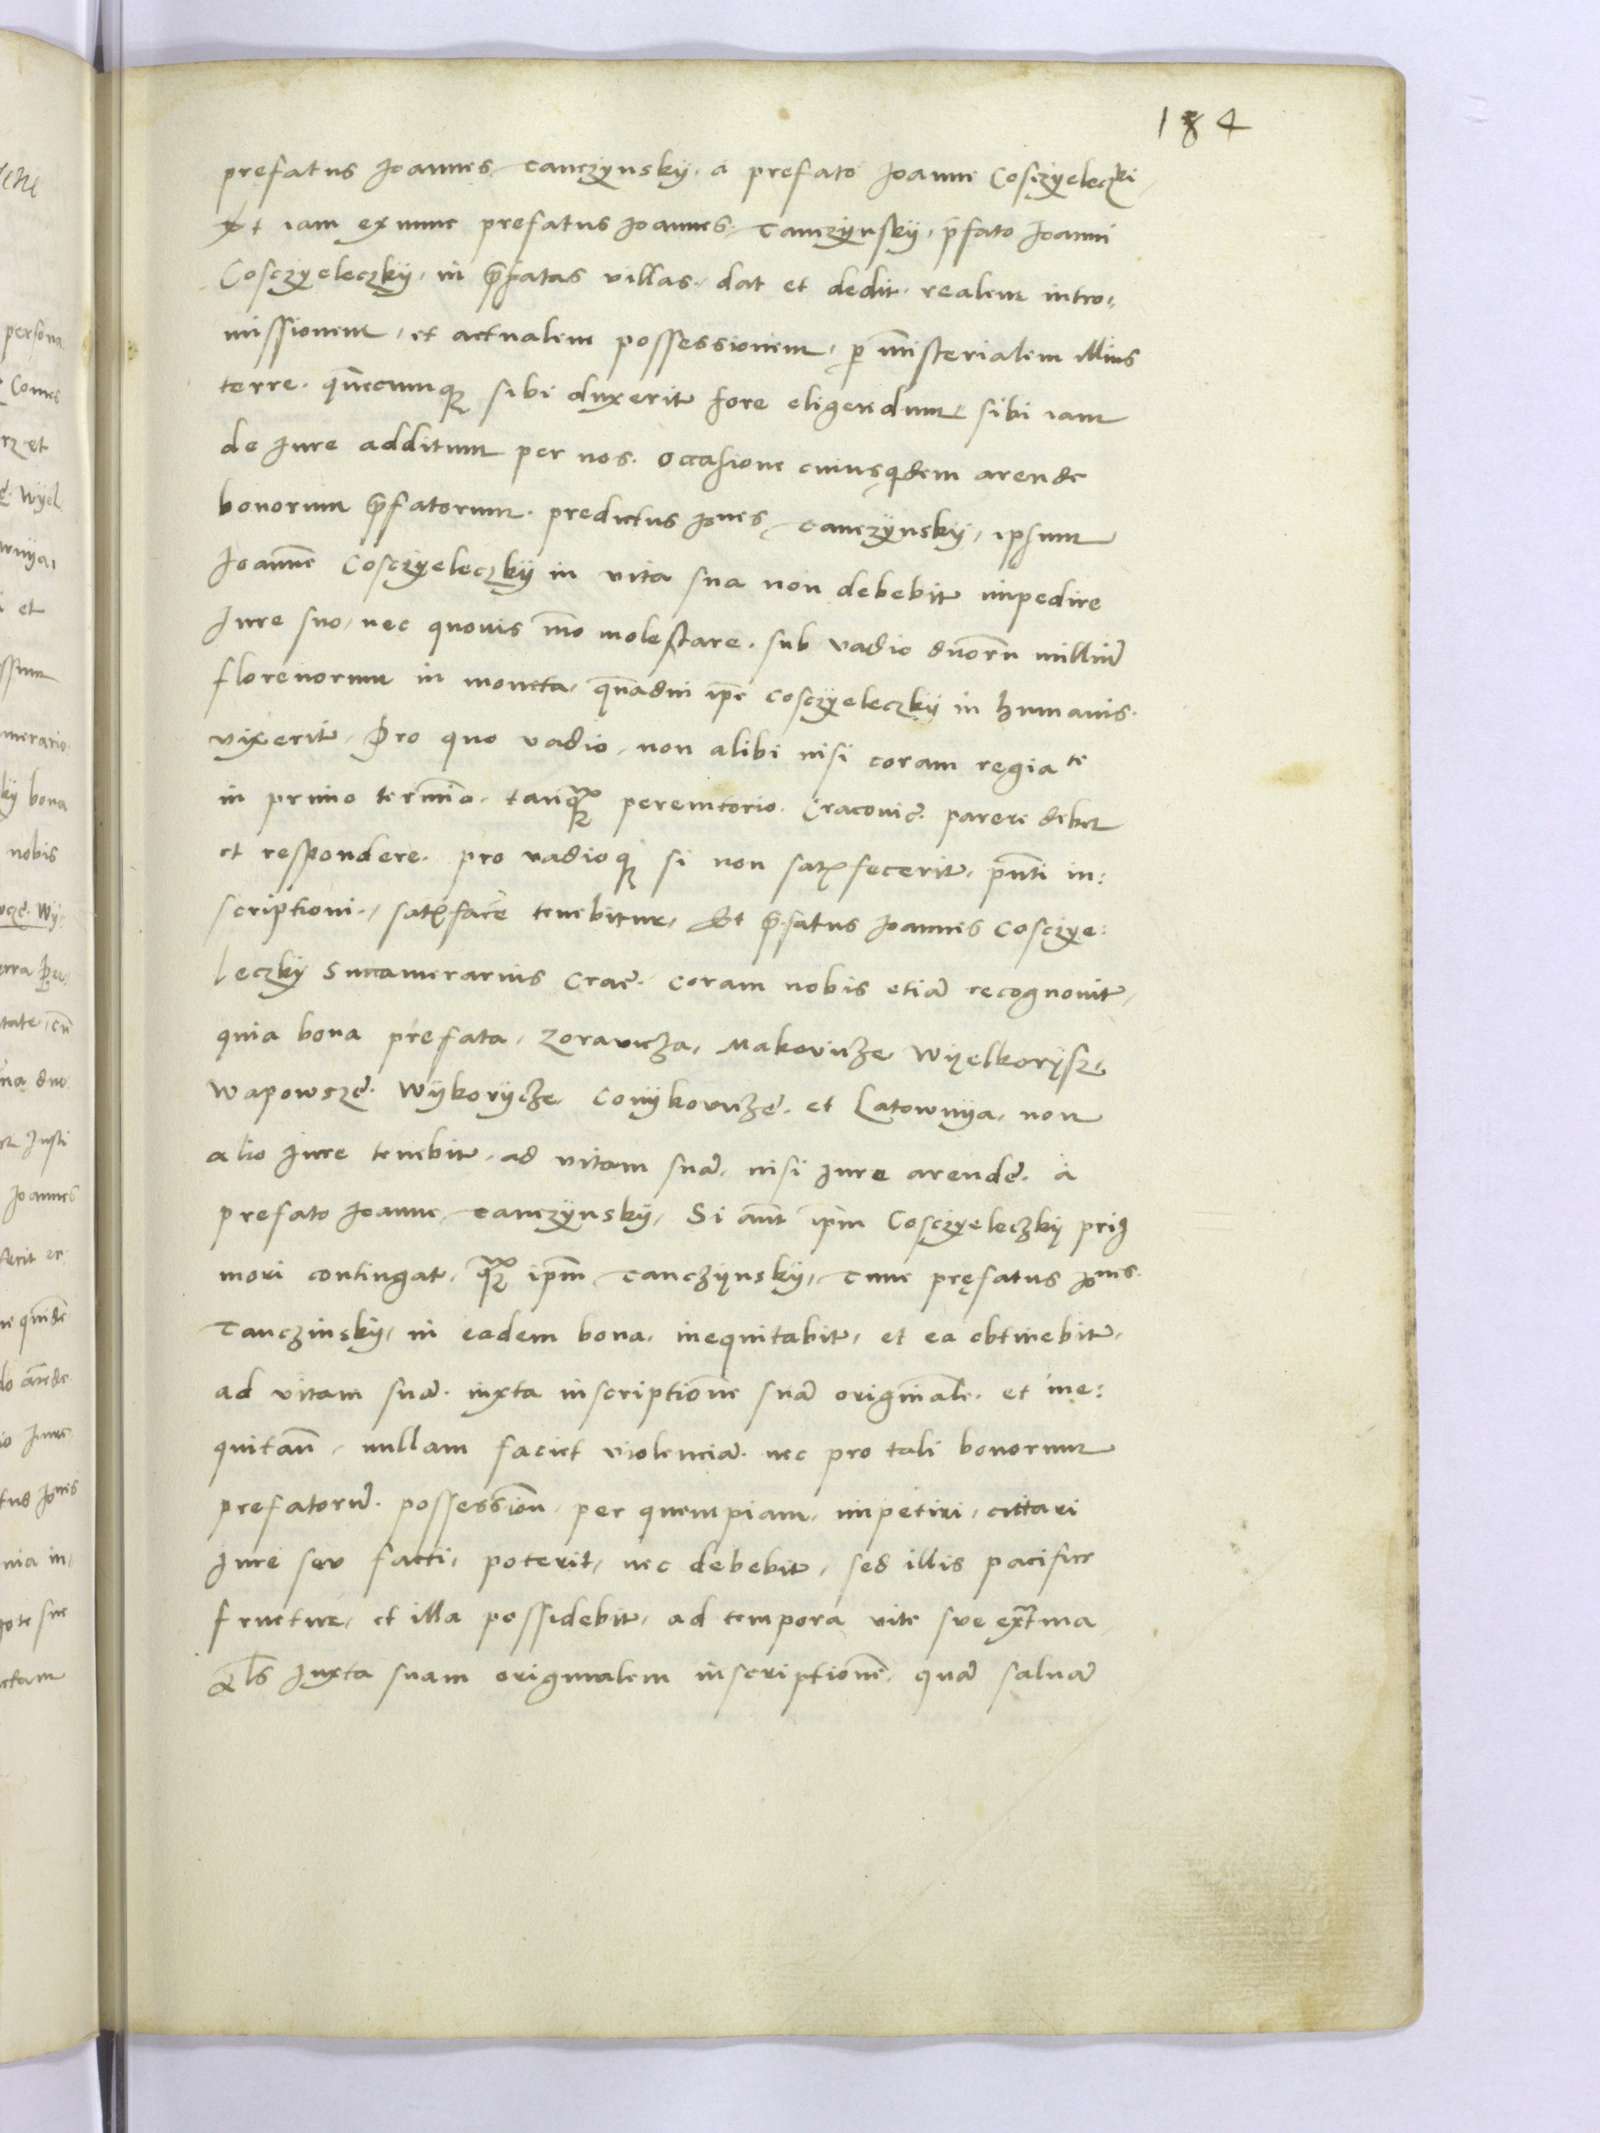 184
prefatus Joannes Tanczynsky a prefato Joanne Cosczyeleczki
Et iam ex nunc prefatus Joannes Tanczynsky, p̄fato Joanni
Cosczyeleczky, in p̄fatas villas dat et dedit realem intro,
missionem, et actualem possessionem, per minsterialem illius
terre. quemcumqȝ sibi duxerit fore eligendum sibi iam
de Jure additum per nos. occasione cuiusqdem arende
bonorum p̄fatorum. predictus Jo͞nes Tanczynsky, ipsum
Joannē Cosczyeleczky in vita sua non debebit impedire
Jure suo, nec quouis mō molestare. sub vadio duorū milliū
florenorum in moneta, quādiu ip̄e Cosczyeleczky in humanis.
vixerit. Pro quo vadio, non alibi nisi coram regia te
in primo termīo. tanqȝ peremtorio. Cracouiē. parere debet
et respondere. pro vadioqȝ si non satisfecerit, pn̄ti in:
scriptioni, satisfac̄e tenebitur, Et p̄fatus Joannes Cosczye:
leczky Succamerarius Crac̄. coram nobis etiā recognouit,
quia bona prefata, Zorauicza, Makouicze Wyelkorysz,
Wapowsze. Wykorycze Conykouicze. et Latownya, non
alio Jure tenebit, ad vitam suā. nisi Jure arende. a
prefato Joanne Tanczynsky, Si aut̄ ip̄m Cosczyeleczky priꝰ
mori contingat, qȝ ip̄m Tanczynsky, Tunc pręfatus Jo͞nes
Tanczinsky, in eadem bona, inequitabit, et ea obtinebit,
ad vitam suā. iuxta inscriptionē suā originalē. et ine:
quitan̄, nullam faciet violenciā. nec pro tali bonorum
prefatorū. possession̄, per quempiam, impetiri, cittari
Jure seu facti, poterit, nec debebit, sed illis pacifice
fruetur, et illa possidebit, ad tempora vite sue extrema,
Juxta suam originalem inscriptionē, quā saluā